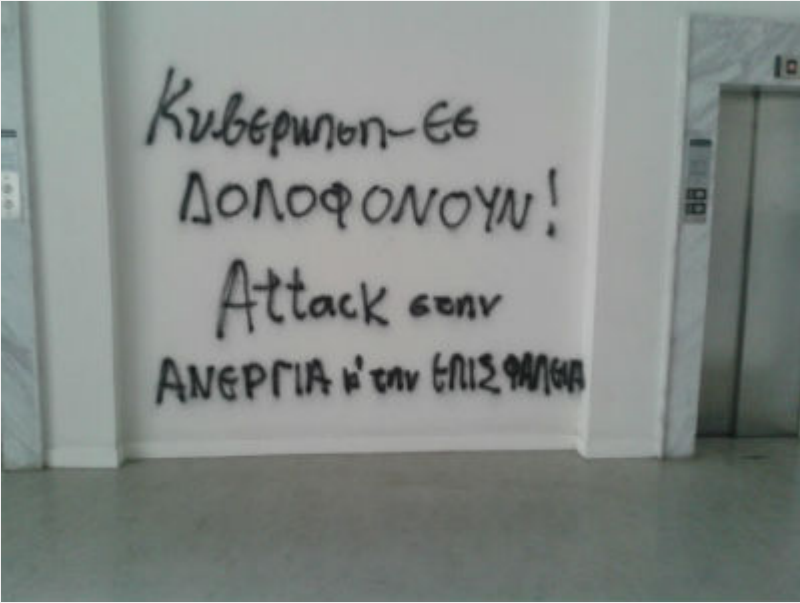 Κυβερνηση-ΕΕ
ΔΟΛΟΦΟΝΟΥΝ!
Attack στην
ΑΝΕΡΓΙΑ κ' την ΕΠΙΣΦΑΛΕΙΑ